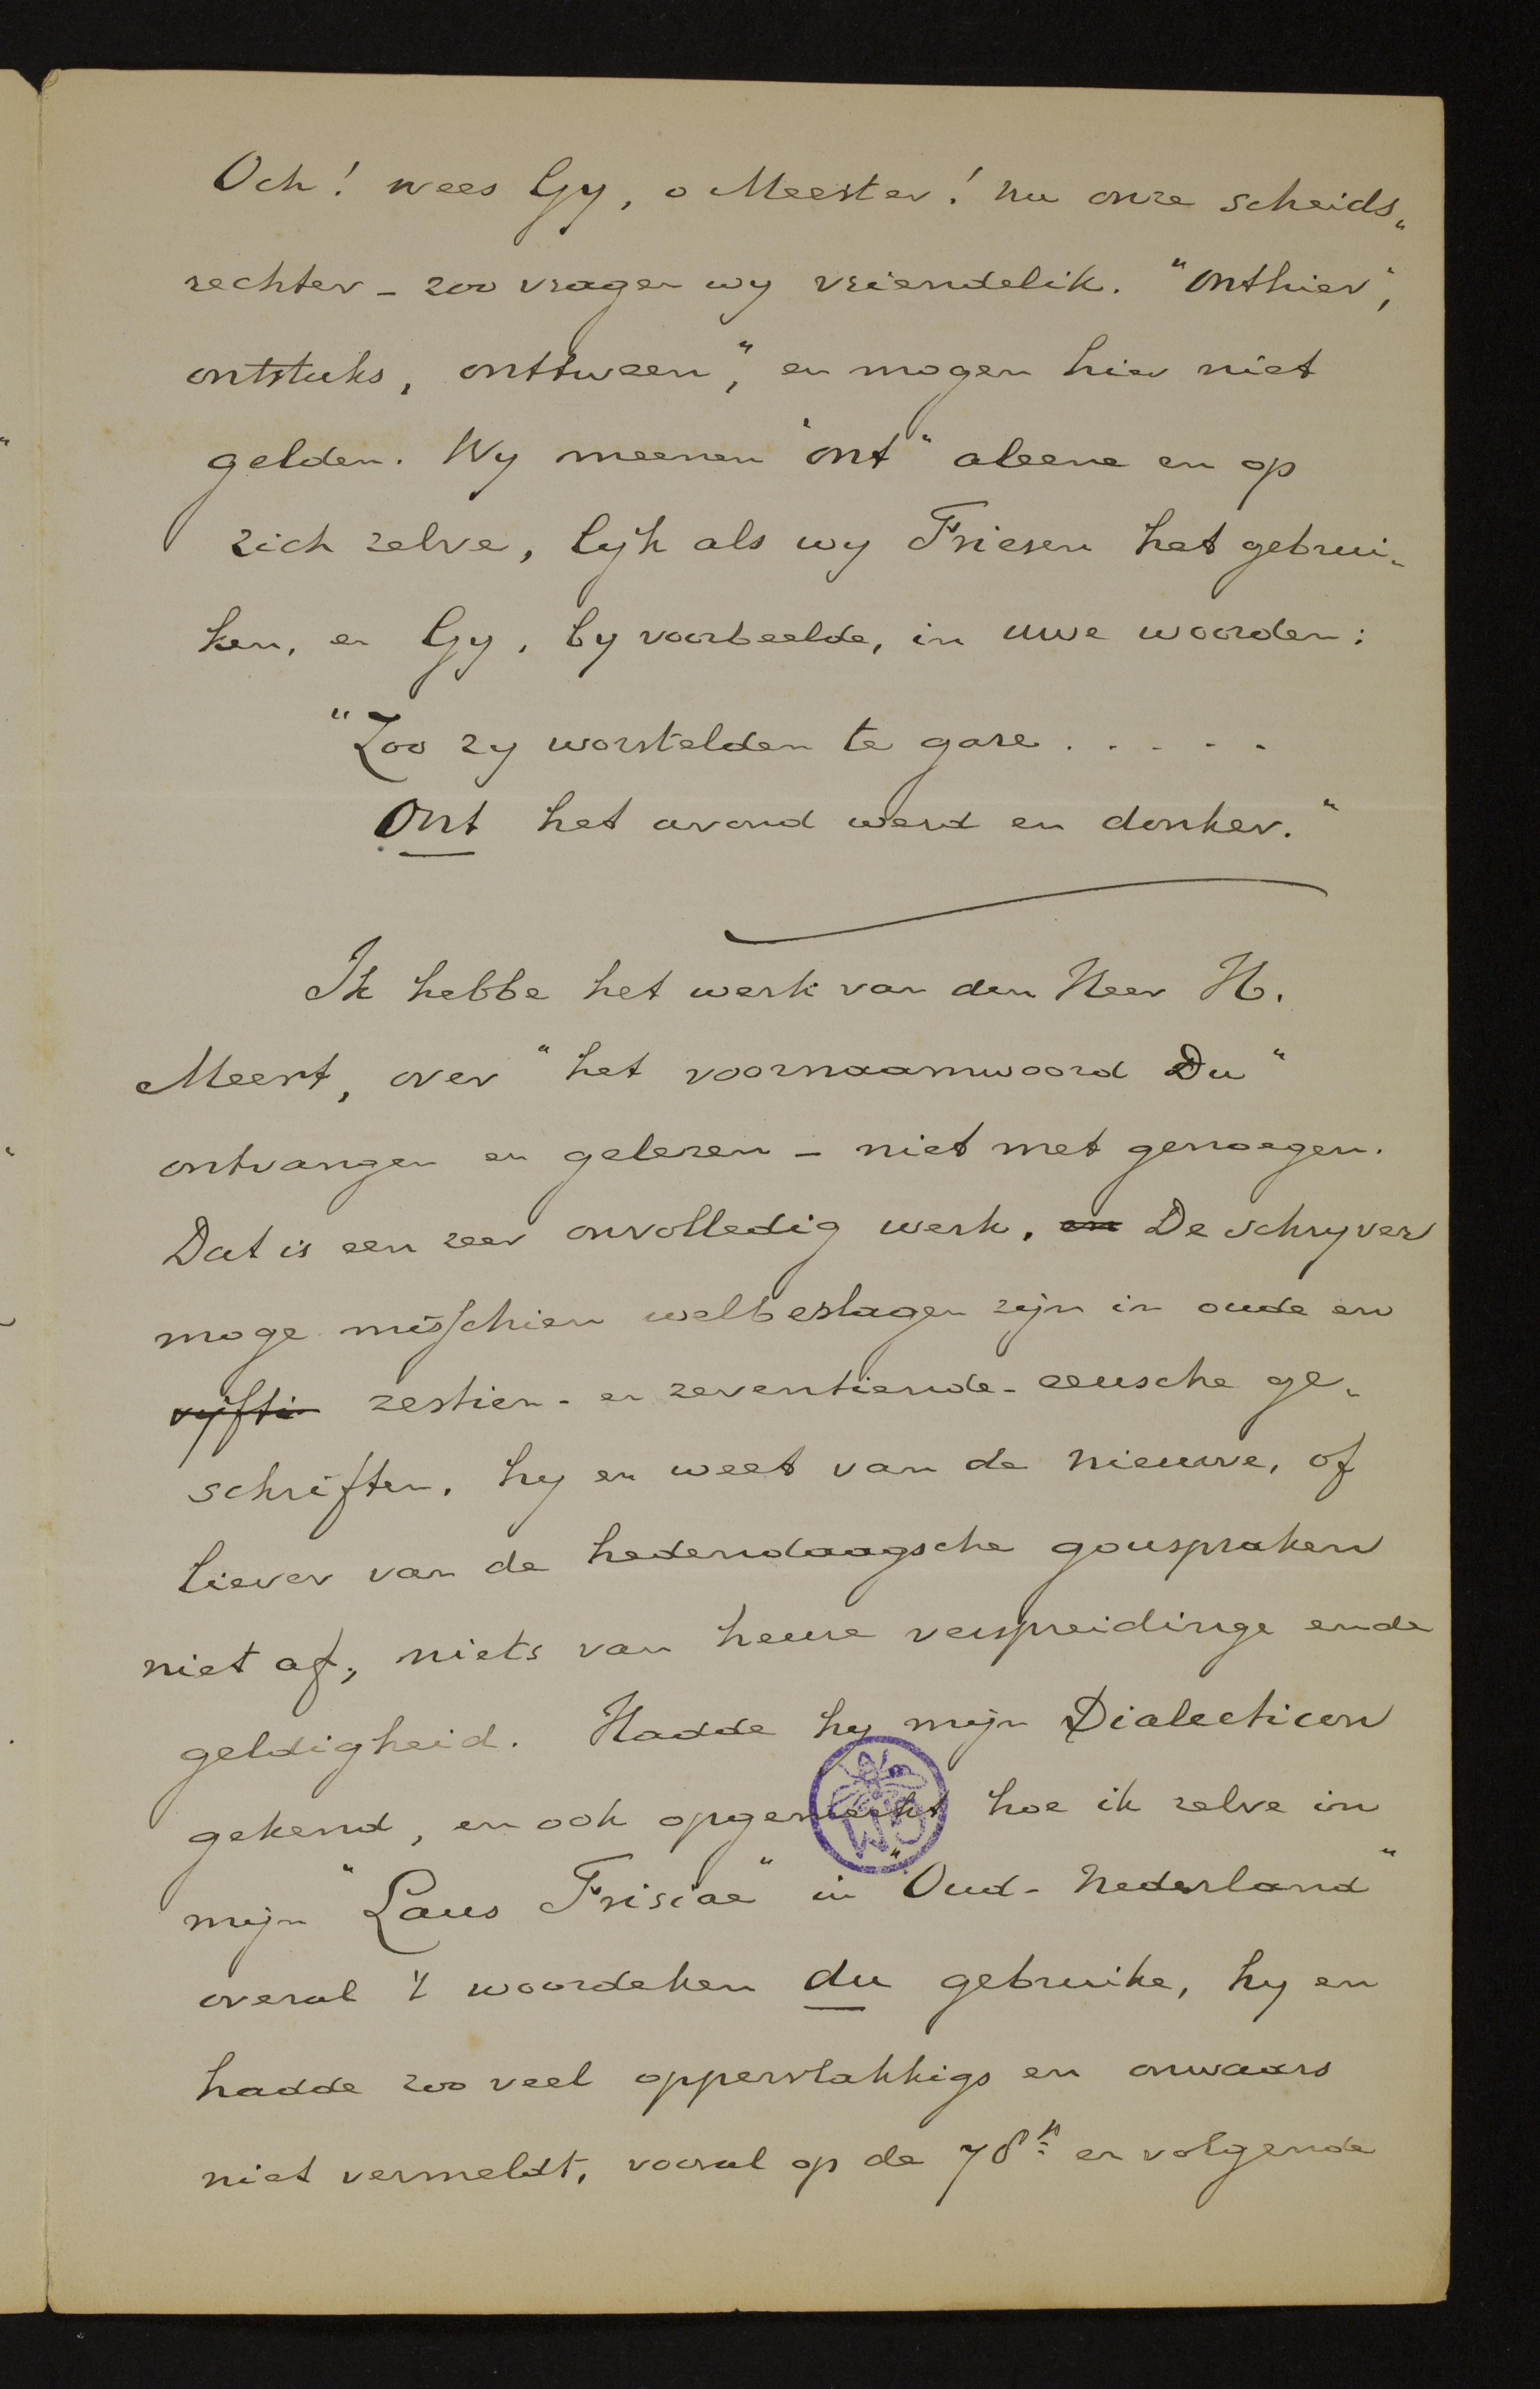 Och! wees Gy, o Meester! nu onze scheids„
rechter – zoo vragen wy vriendelik. "onthier",
ontstuks, onttween", en mogen hier niet
gelden. Wy meenen "ont" aleene en op
zich zelve, lyk als wy Friesen het gebrui„
ken, en Gy, by voorbeelde, in uwe woorden:
"Zoo zy worstelden te gare . . . . .
Ont het avond werd en donker."
Ik hebbe het werk van den Heer H.
Meert, over "het voornaamwoord Du"
ontvangen en gelezen – niet met genoegen.
Dat is een zeer onvolledig werk. en De schryver
moge misschien welbeslagen zijn in oude en
vyftin zestien- en zeventiende-eeusche ge„
schriften, hy en weet van de nieuwe, of
liever van de hedendaagsche gouspraken
niet af, niets van heure verspreidinge ende
geldigheid. Hadde hy mijn Dialecticon
gekend, en ook opgemerkt hoe ik zelve in
mijn "Laus Frisiae" in "Oud-Nederland"
overal 't woordeken du gebruike, hy en
hadde zoo veel oppervlakkigs en onwaars
niet vermeldt, vooral op de 78e en volgende